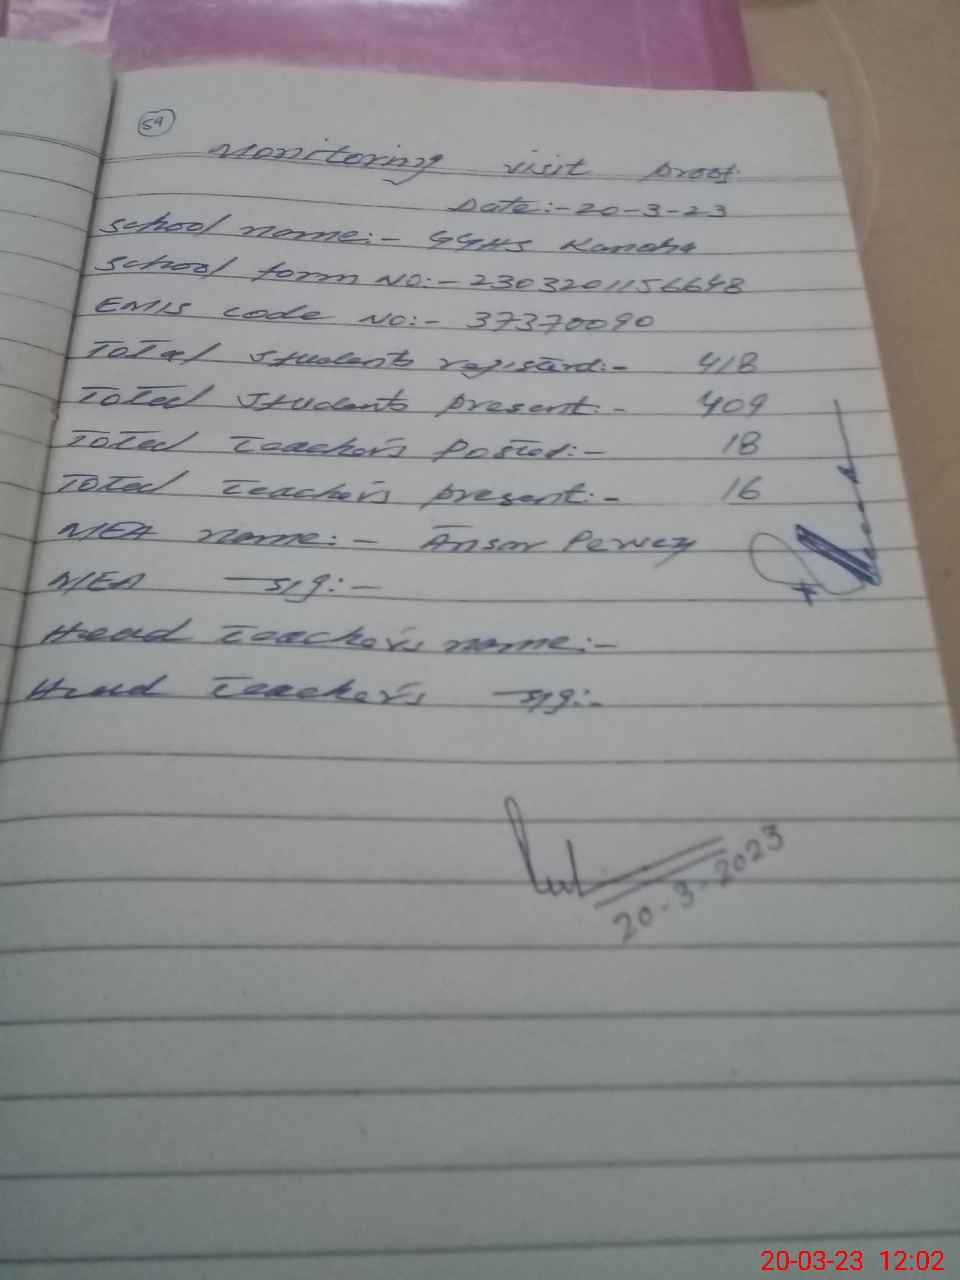 59
Monitoring visit proof
Date:-20-3-23
School name:- GGHS
School form No:-2303201156648
EMIS code No:- 37370090
Total students registerd:- 418
Total Students present:- 409
Total Teachers Posted:- 18
Total teachers present:- 16
MEA name:- Ansar Pervez
MEA sig:-
Head teacher's name:-
Head teacher's sig:-
20-3-2023
20-03-23 12:02